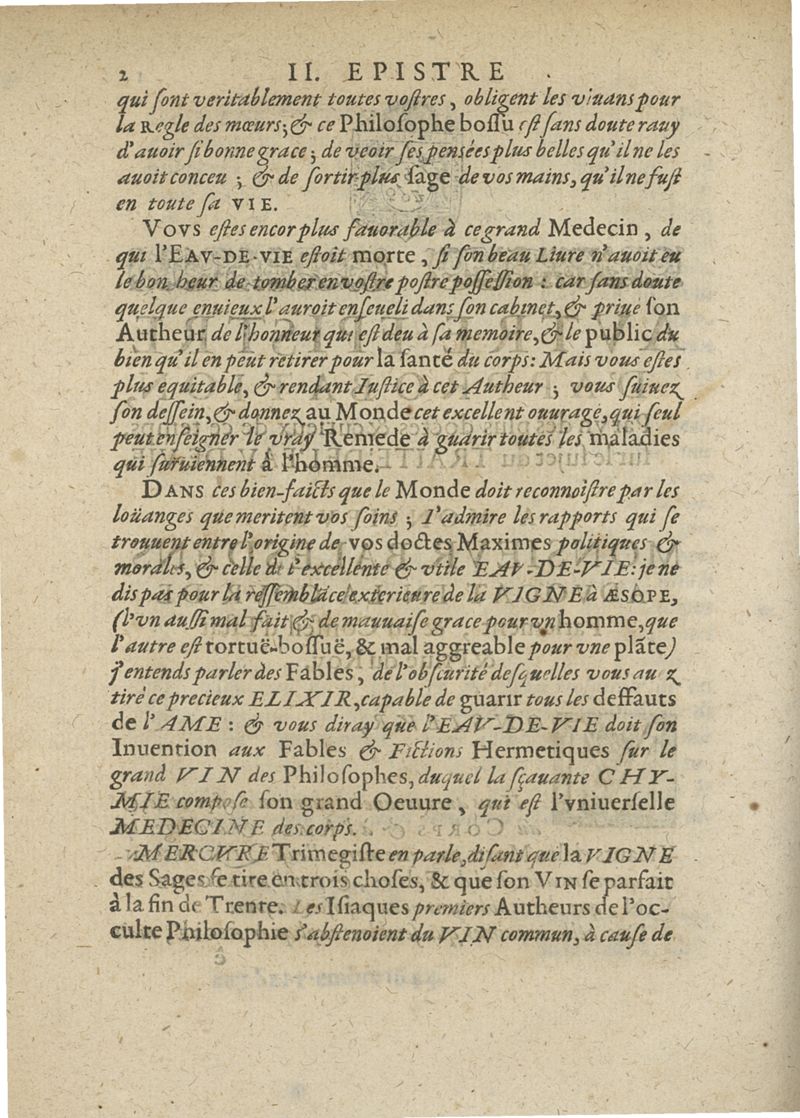 2 II. EPISTRE
qui ſont veritablement toutes voſtres, obligent les viuans pour
la Regle des mœurs; & ce Philoſophe boſſu eſt ſans doute rauy
d'auoir ſi bonne grace; de veoir ſes penſées plus belles qu'il ne les
auoit conceu ; & de ſortir plus ſage de vos mains, qu'il ne fuſt
en toute ſa VIE.
VOVS eſtes encor plus fauorable à ce grand Medecin, de
qui l'EAV-DE-VIE eſtoit morte, ſi ſon beau Liure n'auoit eu
le bon heur de tomber en voſtre poſtre poſſeſſion : car ſans doute
quelque enuieux l'auroit enſeueli dans ſon cabinet, & priue ſon
Autheur de l'honneur qui eſt deu à ſa memoire, & le public du
bien qu'il en peut retirer pour la ſanté du corps: Mais vous eſtes
plus equitable, & rendant Iuſtice à cet Autheur ; vous ſuiuez
ſon deſſein, & donnez au Monde cet excellent ouurage, qui ſeul
peut enſeigner le vray Remede à guarir toutes les maladies
qui ſuruiennent à l'homme.
DANS ces bien-faicts que le Monde doit reconnoiſtre par les
loüanges que meritent vos ſoins ; I'admire les rapports qui ſe
trouuent entre l'origine de vos doctes Maximes politiques &
morales, & celle de l'excellente & vtile EAV-DE-VIE: je ne
dis pas pour la reſſemblãce exterieure de la VIGNE à ÆSOPE,
(l'vn auſſi mal fait & de mauuaiſe grace pour vn homme, que
l'autre eſt tortuë-boſſuë, & mal aggreable pour vne plãte)
j'entends parler des Fables, de l'obſcurité deſquelles vous au z
tiré ce precieux ELIXIR, capable de guarir tous les deffauts
de l'AME : & vous diray que l'EAV-DE-VIE doit ſon
Inuention aux Fables & Fictions Hermetiques ſur le
grand VIN des Philoſophes, duquel la ſçauante CHY-
MIE compoſe ſon grand Oeuure, qui eſt l'vniuerſelle
MEDECINE des corps.
MERCVRE Trimegiſte en parle, diſant que la VIGNE
des Sages ſe tire en trois choſes, & que ſon VIN ſe parfait
à la fin de Trente. Les Iſiaques premiers Autheurs de l'oc-
culte Philoſophie s'abſtenoient du VIN commun, à cauſe de